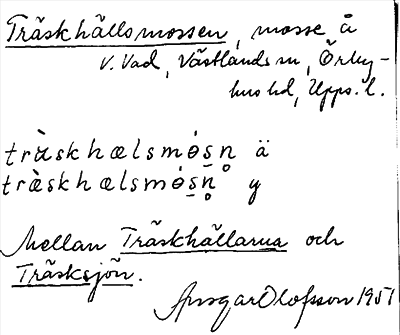 Träskhällsmossen, mosse å
V. Vad, Västlands sn, Örby-
hus hd, Upps. l.
tràskhælsmósn̥ ä
træ̀skhælsmósn̥ y
Mellan Träskhällarna och
Träsksjön.
Ansgar Olofsson 1951